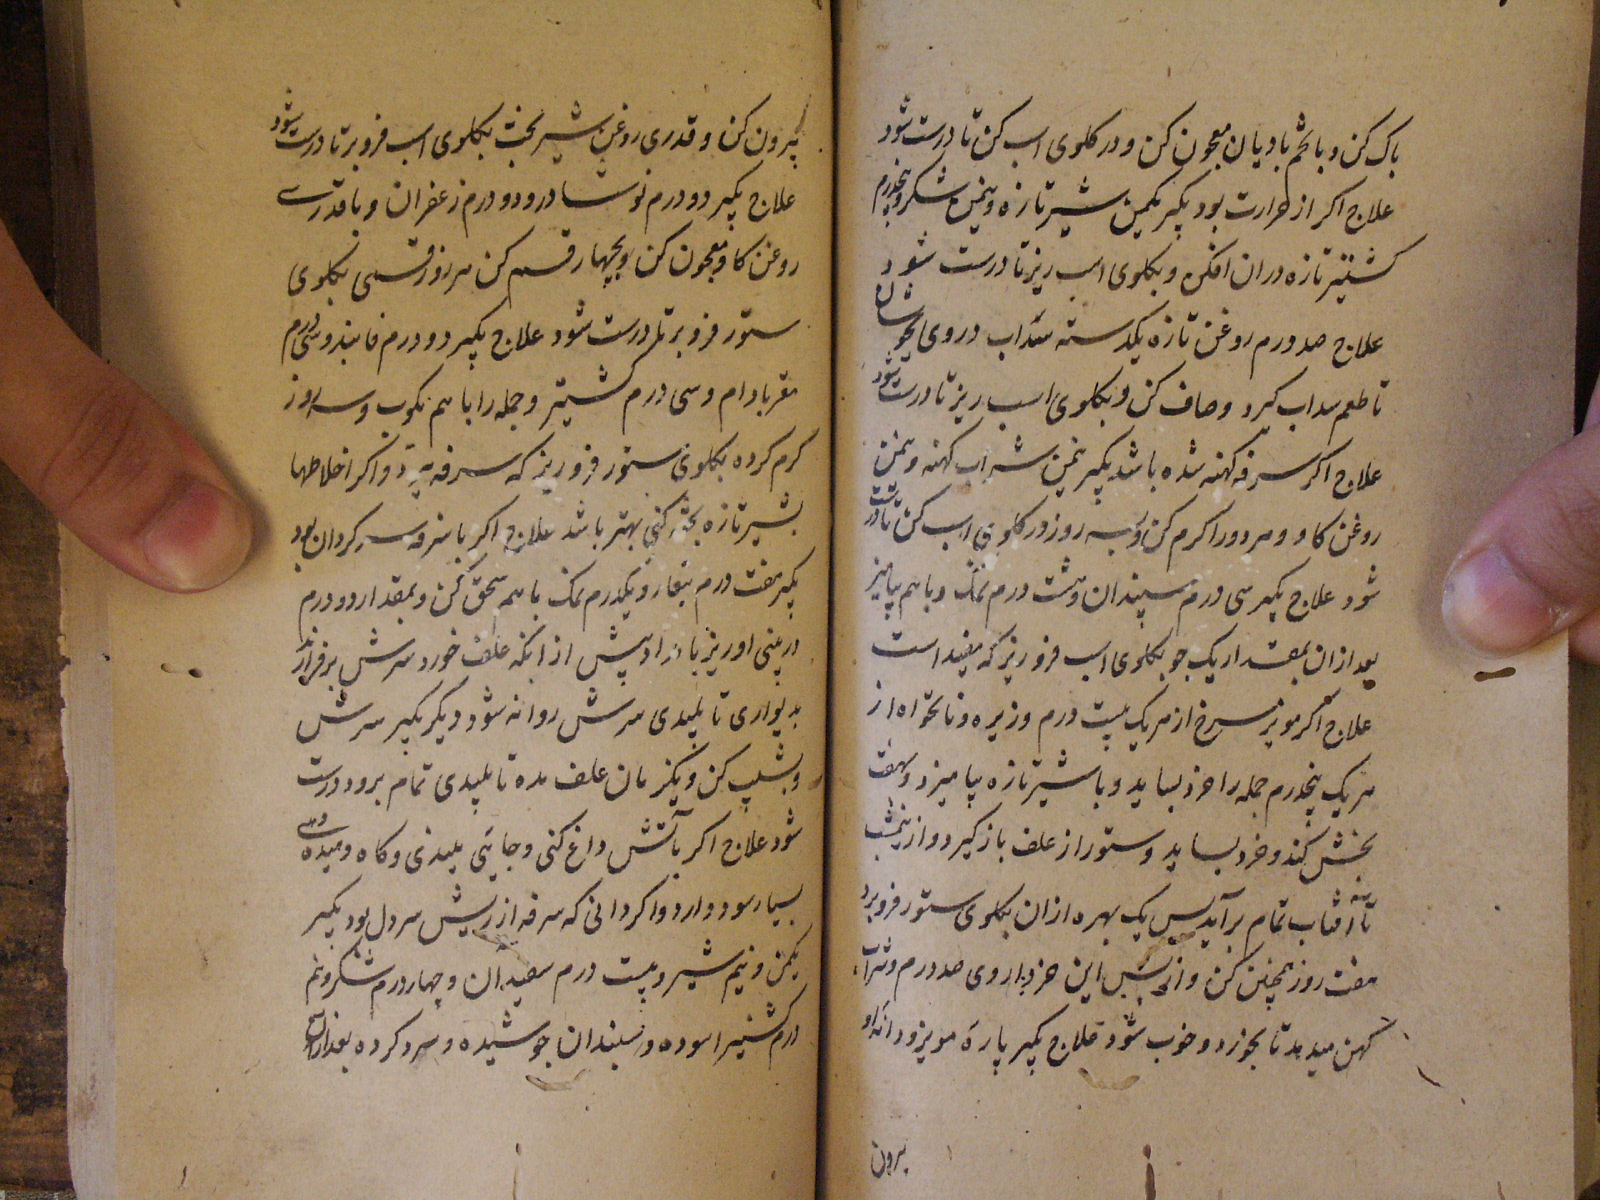 باک کن و با تخم بادیان معجون کن و در کلوی اسب کن تا درست شود
علاج اکر از حرارت بود بکیر یکمن شیر تازه و نیمن شکر و پنجدرم
کشنیز تازه دران افکن و بکلوی اسب ریز تا درست شود
علاج صد درم روغن تازه یکدسته سداب در وی بجوشان
تا طعم سداب کیرد و صاف کن و بکلوی اسب ریز تا درست شود
علاج اکر سرفه کهنه شده باشد بکیر نیمن شراب کهنه و نیمن
روغن کاو و هر دو را کرم کن و سه روز در کلوی اسب کن تا درست
شود علاج بکیر سی درم سپندان و هشت درم نمک و با هم بیامیز
بعد ازان بمقدار یک جو بکلوی اسب فرو ریز که مفید است
علاج اکر مویز سرخ از هر یک بیست درم و زیره و نانخواه از
هر یک پنجدرم جمله را خرد بساید و با شیر تازه بیامیزد و هفت
بخش کند و خرد بساید و ستور از علف باز کیرد و از نیمشب
تا افتاب تمام برآید پس یک بهره ازان بکلوی ستور فرو برد
هفت روز همچنین کن و از پس این خرد داروی صد درم شراب
کهن میدهد تا بخورد و خوب شود علاج بکیر پارهٔ مویز و دانه او
بیرون
بیرون کن و قدری روغن شیر بخت بکلوی اسب فرو بر تا درست شود
علاج بکیر دو درم نوشادر و دو درم زعفران و با قدری
روغن کاو معجون کن و بچهار قسم کن هر روز قسمی بکلوی
ستور فرو بر تا درست شود علاج بکیر دو درم فانیذ و سی درم
مغز بادام و سی درم کشنیز و جمله را با هم بکوب و سه روز
کرم کرده بکلوی ستور فرو ریز که سرفه ببرد و اکر اخلاطها
بشیر تازه پخته کنی بهتر باشد علاج اکر با سرفه سر کردان بود
بکیر هفت درم و یکدرم نمک با هم سحق کن و بمقدار دو درم
در بینی او ریز بامداد پیش از انکه علف خورد سرش بر فراز
بدیواری تا پلیدی سرش روانه شود دیکر بکیر سرش
و بشیب کن و یکزمان علف مده تا پلیدی تمام برود درست
شود علاج اکر بآتش داغ کنی و جایی پلیدی و کاه و میده
بسیار سود دارد و اکر دانی که سرفه از ریش سر دل بود بکیر
یکمن و نیم شیر و بیست درم سفیدان و چهار درم شکر و نیم
درم کشنیز اسوده و سپندان جوشیده و سرد کرده بعد ازان